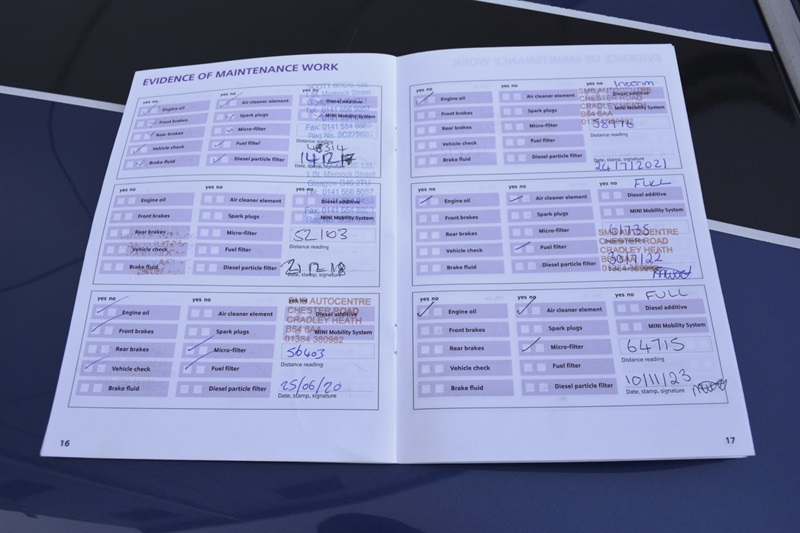 EVIDENCE OF MAINTENANCE WORK
yes no
Engine oil
Air cleaner element
Diesel additive
Front brakes
Spark plugs
MINI Mobility System
Rear brakes
Micro-filter
Distance reading
Vehicle check
Fuel filter
Brake fluid
Diesel particle filter
Date, stamp, signature
yes no
yes no
yes no
Engine oil
Air cleaner element
Diesel additive
Front brakes
Spark plugs
MINI Mobility System
Rear brakes
Micro-filter
52103
Distance reading
Vehicle check
Fuel filter
Brake fluid
Diesel particle filter
Date, stamp, signature
yes no
yes no
Engine oil
Air cleaner element
Diesel additive
SMR AUTOCENTRE
CHESTER ROAD
CRADLEY HEATH
B64 6AA
01384 380982
Front brakes
Spark plugs
MINI Mobility System
Rear brakes
Micro-filter
56403
Distance reading
Vehicle check
Fuel filter
25/06/20
Brake fluid
Diesel particle filter
Date, stamp, signature
16
yes no
yes no
yes no
Interim
Engine oil
Air cleaner element
Diesel additive
CHESTER ROAD
CRADLEY HEATH
B64 6AA
Front brakes
Spark plugs
MINI Mobility System
Rear brakes
Micro-filter
Distance reading
Vehicle check
Fuel filter
Brake fluid
Diesel particle filter
Date, stamp, signature
24/7/2021
yes no
yes no
yes no
FULL
Engine oil
Air cleaner element
Diesel additive
Front brakes
Spark plugs
MINI Mobility System
CHESTER ROAD
CRADLEY HEATH
Rear brakes
Micro-filter
Vehicle check
Fuel filter
Brake fluid
Diesel particle filter
Date, stamp, signature
yes no
yes no
yes no
FULL
Engine oil
Air cleaner element
Diesel additive
Front brakes
Spark plugs
MINI Mobility System
Rear brakes
Micro-filter
64715
Distance reading
Vehicle check
Fuel filter
10/11/23
Brake fluid
Diesel particle filter
Date, stamp, signature
17